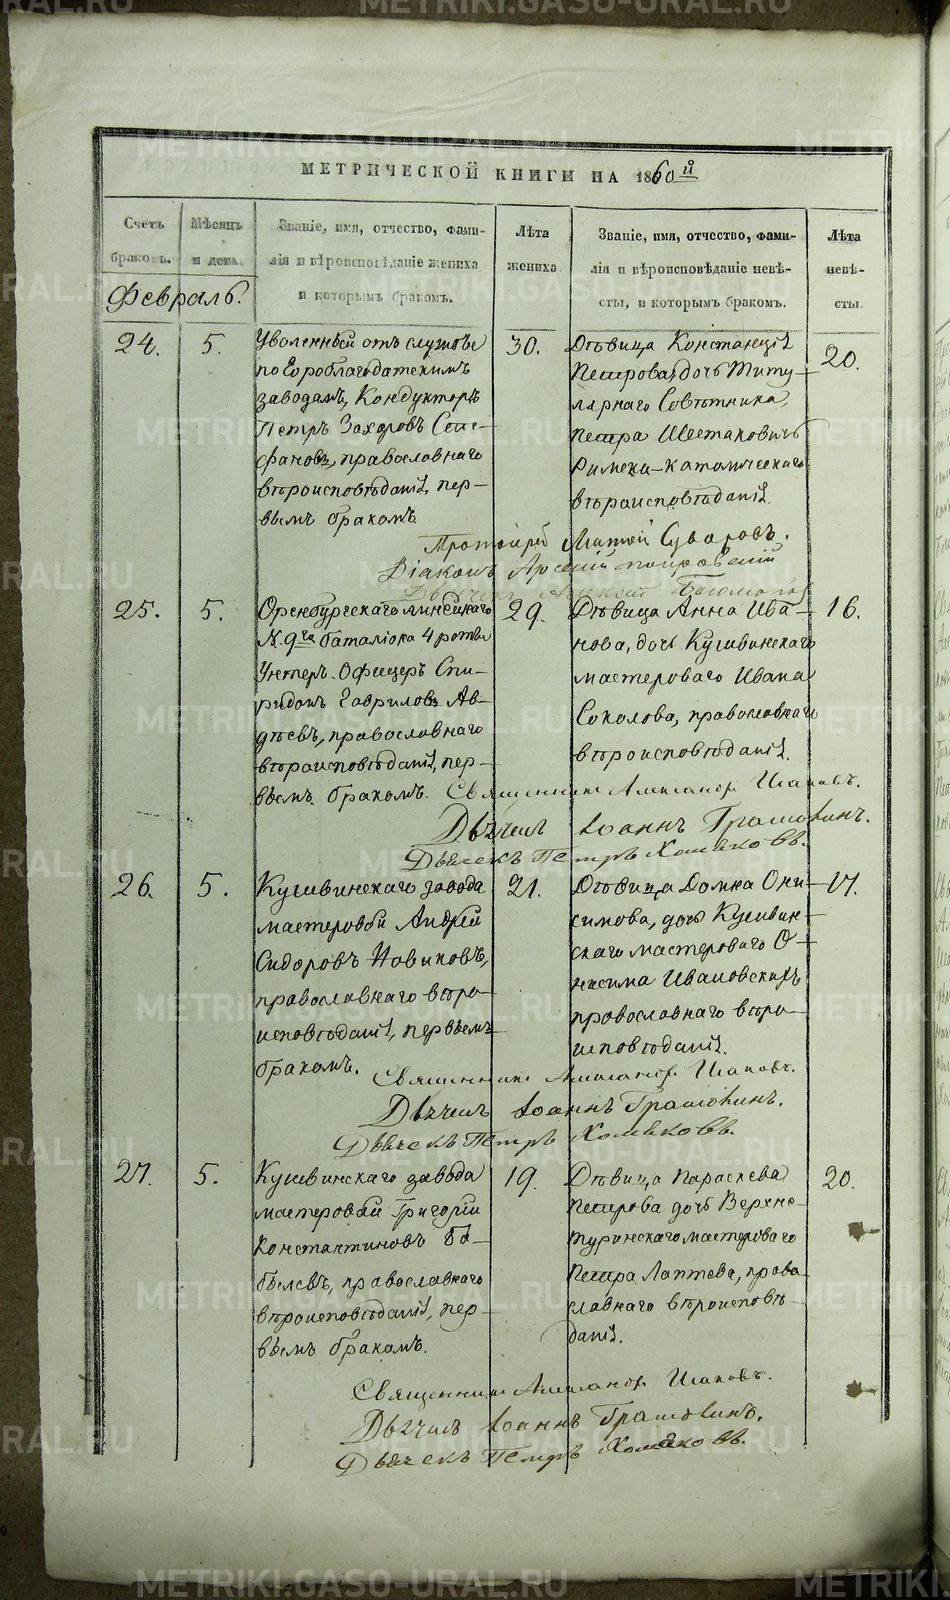 МЕТРИЧЕСКОЙ КНИГИ НА 1860й
Счетъ браковъ.
Мѣсяцъ и день.
Званіе, имя, отчество, фами-
лія и вѣроисповѣданіе жениха
и которымъ бракомъ.
Лѣта жениха
Званіе, имя, отчество, фами-
лія и вѣроисповѣданіе невѣ-
сты, и которымъ бракомъ.
Лѣта невѣ-
сты.
Февраль.
24. 5.
Уволенный отъ службы
по Гороблагодатскимъ
заводамъ, Кондукторъ
Петръ Захаровъ Сте-
фановъ, православнаго
вѣроисповѣданія, пер-
вымъ бракомъ
30.
Дѣвица Констанція
Петрова, дочь Титу-
лярнаго Совѣтника
Петра Шестаковичъ
Римско-католическаго
вѣроисповѣданія.
20.
Протоіерей Суворовъ.
Діаконъ Арсеній
25. 5.
Оренбургскаго линейнаго
№ 9го баталіона 4 роты
Унтеръ-Офицеръ Спи-
ридонъ Гавриловъ Ав-
дѣевъ, православнаго
вѣроисповѣданія, пер-
вымъ бракомъ.
29.
Дѣвица Анна Ива-
нова, дочь Кушвинскаго
мастероваго Ивана
Соколова, православнаго
вѣроисповѣданія.
16.
Священникъ Александръ Шаковъ.
Дьячекъ Петръ Хомяковъ.
26. 5.
Кушвинскаго завода
мастеровой Андрей
Сидоровъ Новиковъ,
православнаго вѣро-
исповѣданія, первымъ
бракомъ.
21.
Дѣвица Домна Они-
симова, дочь Кушвин-
скаго мастероваго О-
нисима Ивановскихъ
православнаго вѣро-
исповѣданія.
17.
Священникъ Александръ Шаковъ.
Дьячекъ Петръ Хомяковъ.
27. 5.
Кушвинскаго завода
мастеровой Григорій
Константиновъ Бо-
былевъ, православнаго
вѣроисповѣданія, пер-
вымъ бракомъ.
19.
Дѣвица Параскева
Петрова дочь Верхне-
туринскаго мастероваго
Петра Лаптева, право-
славнаго вѣроисповѣ-
данія.
20.
Священникъ Александръ Шаковъ.
Дьячекъ Петръ Хомяковъ.
METRIKI.GASO-URAL.RU